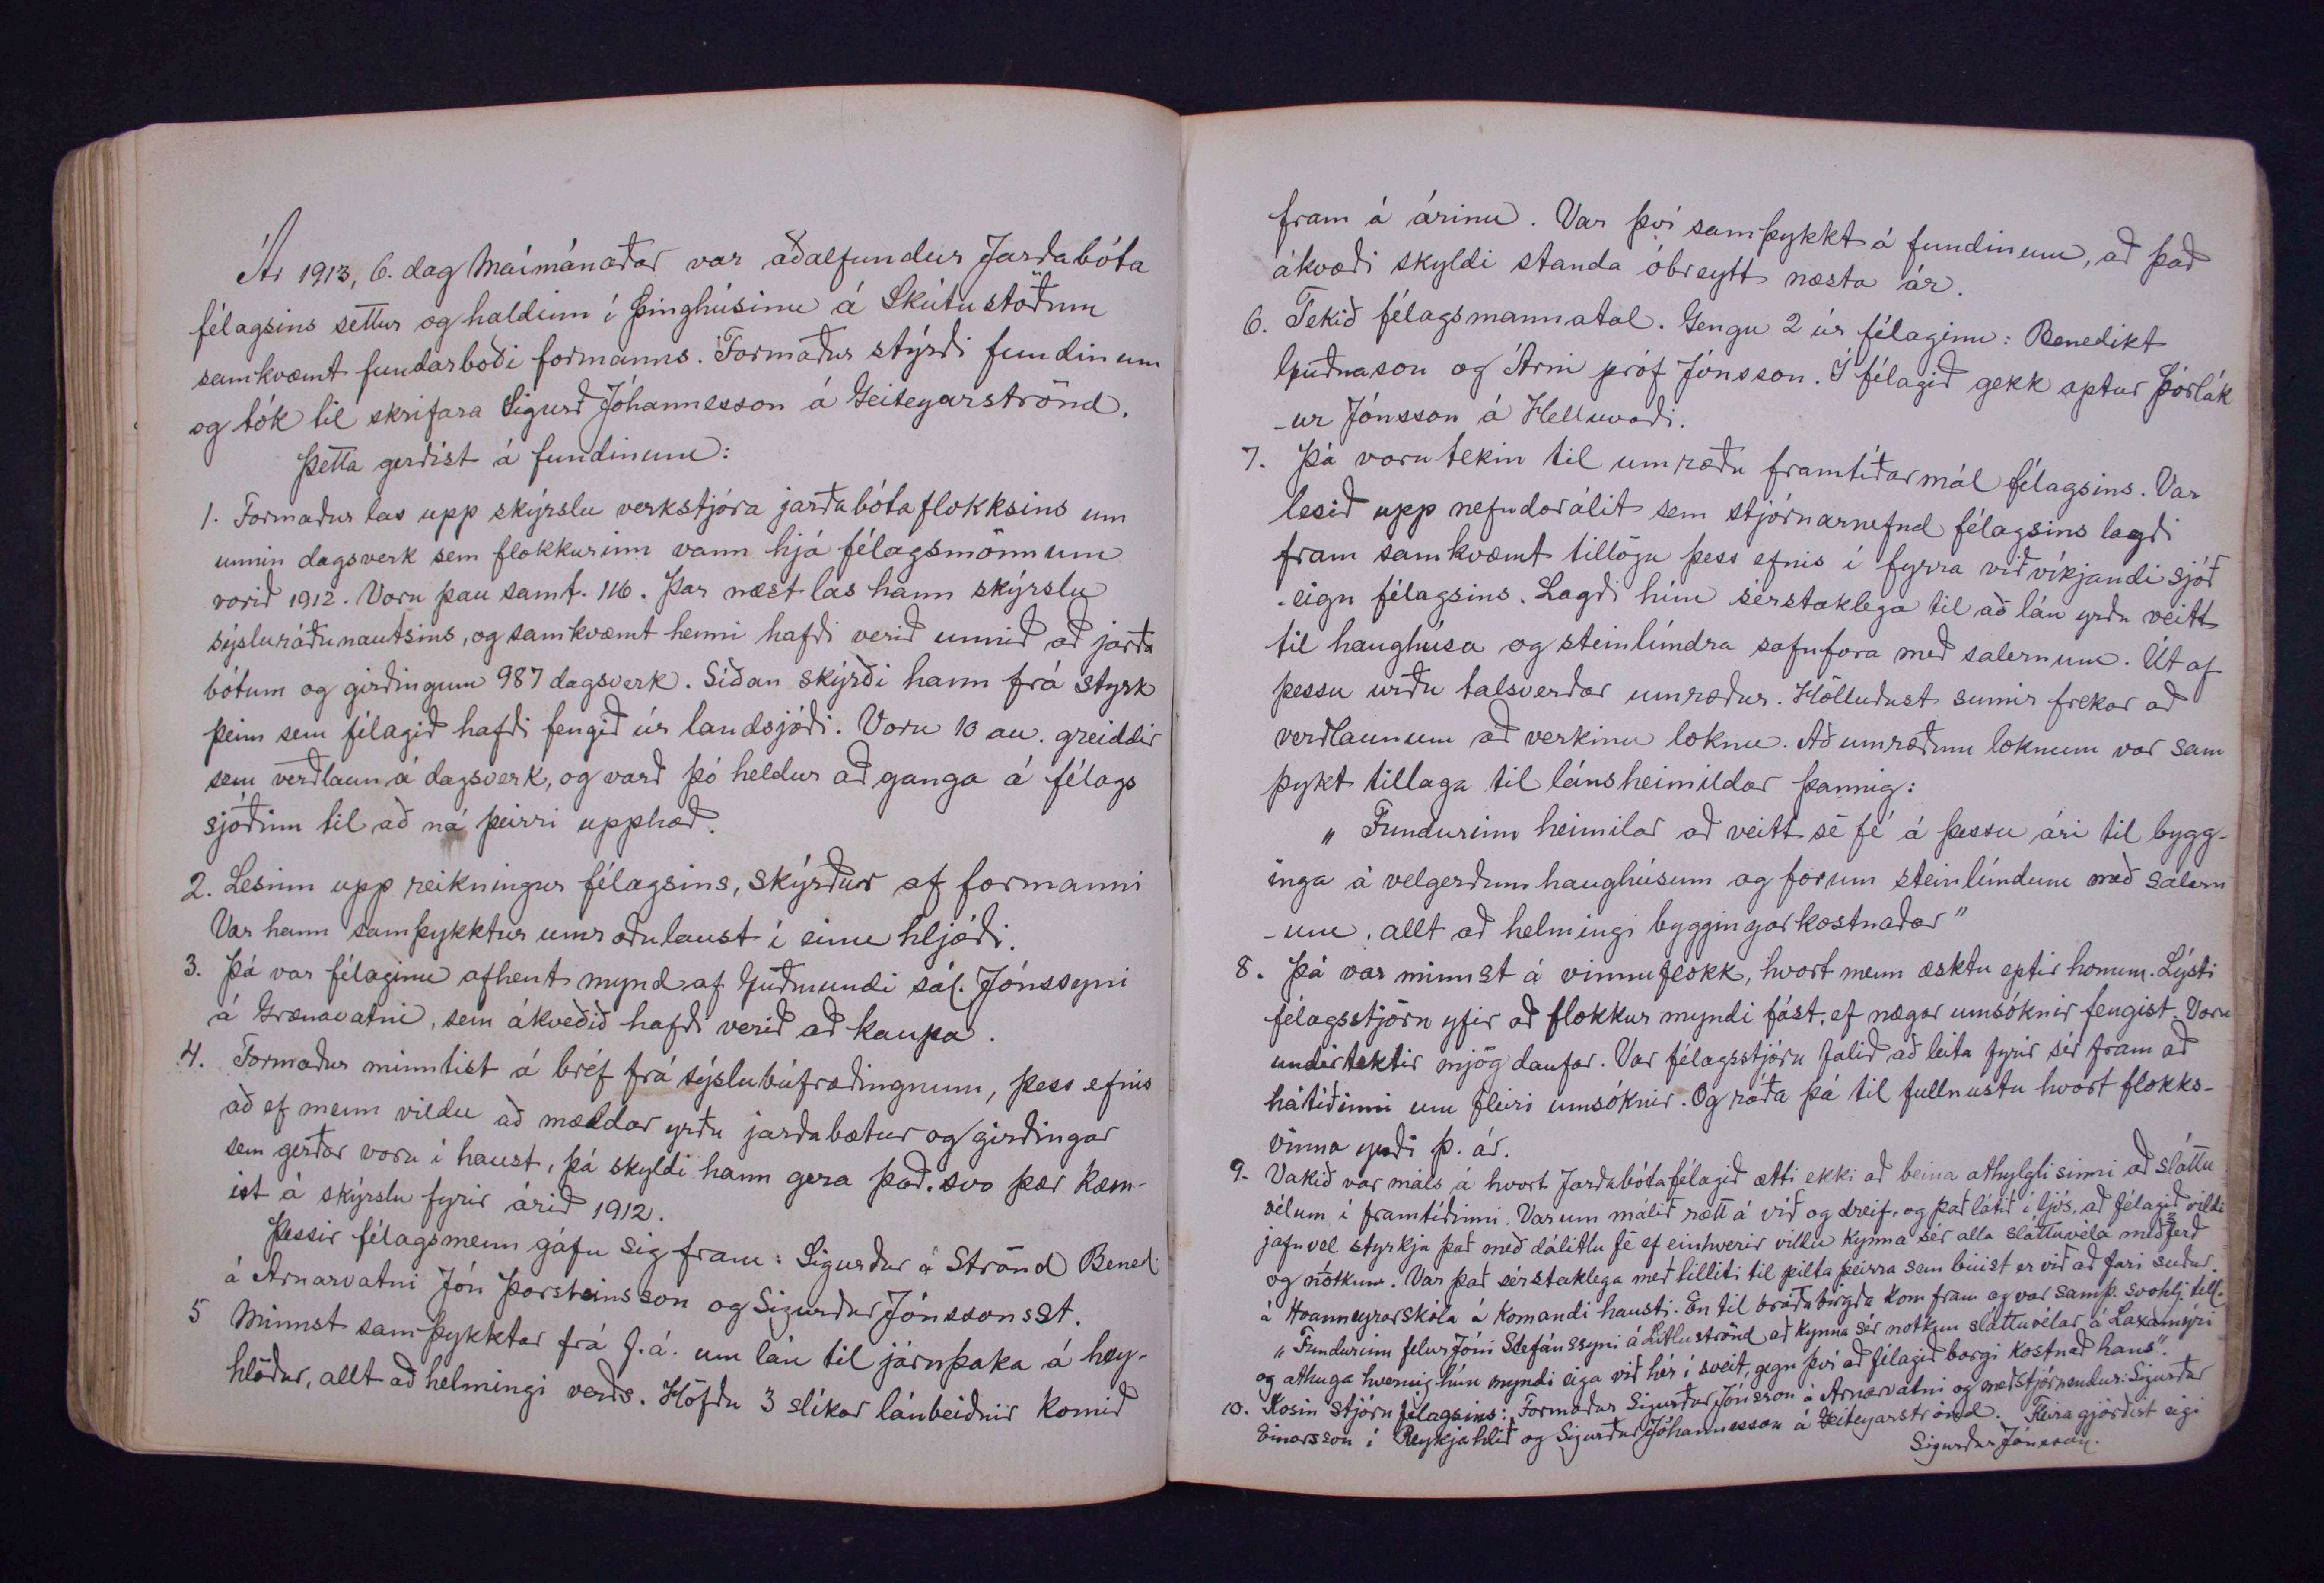 Ár 1913, 6. dag Maímánaðar var aðalfundur Jarðabóta
félagsins settur og haldinn í þinghúsinu á Skútustöðum
samkvæmt fundarboði formanns. Formaður stýrði fundinum
og tók til skrifara Sigurð Jóhannesson á Geiteyarströnd.
Þetta gerðist á fundinum:
1. Formaður las upp skýrslu verkstjóra jarðabótaflokksins um
unnin dagsverk sem flokkurinn vann hjá félagsmönnum
vorið 1912. Voru þau samt. 116. Þar næst las hann skýrslu
sýsluráðunautsins, og samkvæmt henni hafði verið unnið að jarða
bótum og girðingum 987 dagsverk. Síðan skýrði hann frá styrk
þeim sem félagið hafði fengið úr landsjóði. Voru 10 au. greiddir
sem verðlaun á dagsverk, og varð þó heldur að ganga á félags
sjóðinn til að ná þeirri upphæð.
2. Lesinn upp reikningur félagsins, skýrður af formanni
Var hann samþykktur umræðulaust í einu hljóði.
3. Þá var félaginu afhent mynd af Guðmundi sál. Jónssyni
á Grænavatni, sem ákveðið hafði verið að kaupa.
4. Formaður minntist á bréf frá sýslubúfræðingnum, þess efnis
að ef menn vildu að mældar yrðu jarðabætur og girðingar
sem gerðar voru í haust, þá skyldi hann gera það, svo þær kæm-
ist á skýrslu fyrir árið 1912.
Þessir félagsmenn gáfu sig fram: Sigurður á Strönd Bened.
á Arnarvatni Jón Þorsteinsson og Sigurður Jónsson sst.
5 Minnst samþykktar frá f. á. um lán til járnþaka á hey-
hlöður, allt að helmingi verðs. Höfðu 3 slíkar lánbeiðnir komið
fram á árinu. Var því samþykkt á fundinum, að það
ákvæði skyldi standa óbreytt næsta ár.
6. Tekið félagsmannatal. Gengu 2 úr félaginu: Benedikt
Guðnason og Árni próf Jónsson. Í félagið gekk aptur Þórlák
-ur Jónsson á Helluvaði.
7. Þá voru tekin til umræðu framtíðarmál félagsins. Var
lesið upp nefndarálit sem stjórnarnefnd félagsins lagði
fram samkvæmt tillögu þess efnis í fyrra viðvíkjandi sjóð
-eign félagsins. Lagði hún sérstaklega til að lán yrðu veitt
til haughúsa og steinlímdra safnfora með salernum. Út af
þessu urðu talsverðar umræður. Hölluðust sumir frekar að
verðlaunum að verkinu loknu. Að umræðum loknum var sam
þykt tillaga til lánsheimildar þannig:
„Fundurinn heimilar að veitt sé fé á þessu ári til bygg-
inga á velgerðum haughúsum og forum steinlímdum með salern
-um, allt að helmingi byggingarkostnaðar"
8. Þá var minnst á vinnuflokk, hvort menn æsktu eptir honum. Lýsti
félagsstjórn yfir að flokkur myndi fást, ef nægar umsóknir fengist. Voru
undirtektir mjög daufar. Var félagsstjórn falið að leita fyrir sér fram að
hátíðinni um fleiri umsóknir. Og ráða þá til fullnustu hvort flokks-
vinna yrði þ. ár.
9. Vakið var máls á hvort Jarðabótafélagið ætti ekki að beina athylgli sinni að sláttu
vélum í framtíðinni. Var um málið rætt á víð og dreif, og það látið í ljós, að félagið vildi
jafnvel styrkja það með dálitlu fé ef einhverir vildu kynna sér alla sláttuvéla meðferð
og nótkun. Var það sérstaklega með tilliti til pilta þeirra sem búist er við að fari suður
á Hvanneyrarskóla á komandi hausti. En til bráðabirgða kom fram og var samþ. svohlj. till.
„Fundurinn felur Jóni Stefánssyni á Litluströnd að kynna sér notkun sláttuvélar á Laxamýri
og athuga hvernig hún myndi eiga við hér í sveit, gegn því að félagið borgi kostnað hans".
10. Kosin stjórn félagsins: Formaður Sigurður Jónsson á Arnarvatni og meðstjórnendur: Sigurður
Einarsson í Reykjahlíð og Sigurður Jóhannesson á Geiteyarströnd. Fleira gjörðist eigi
Sigurður Jónsson.